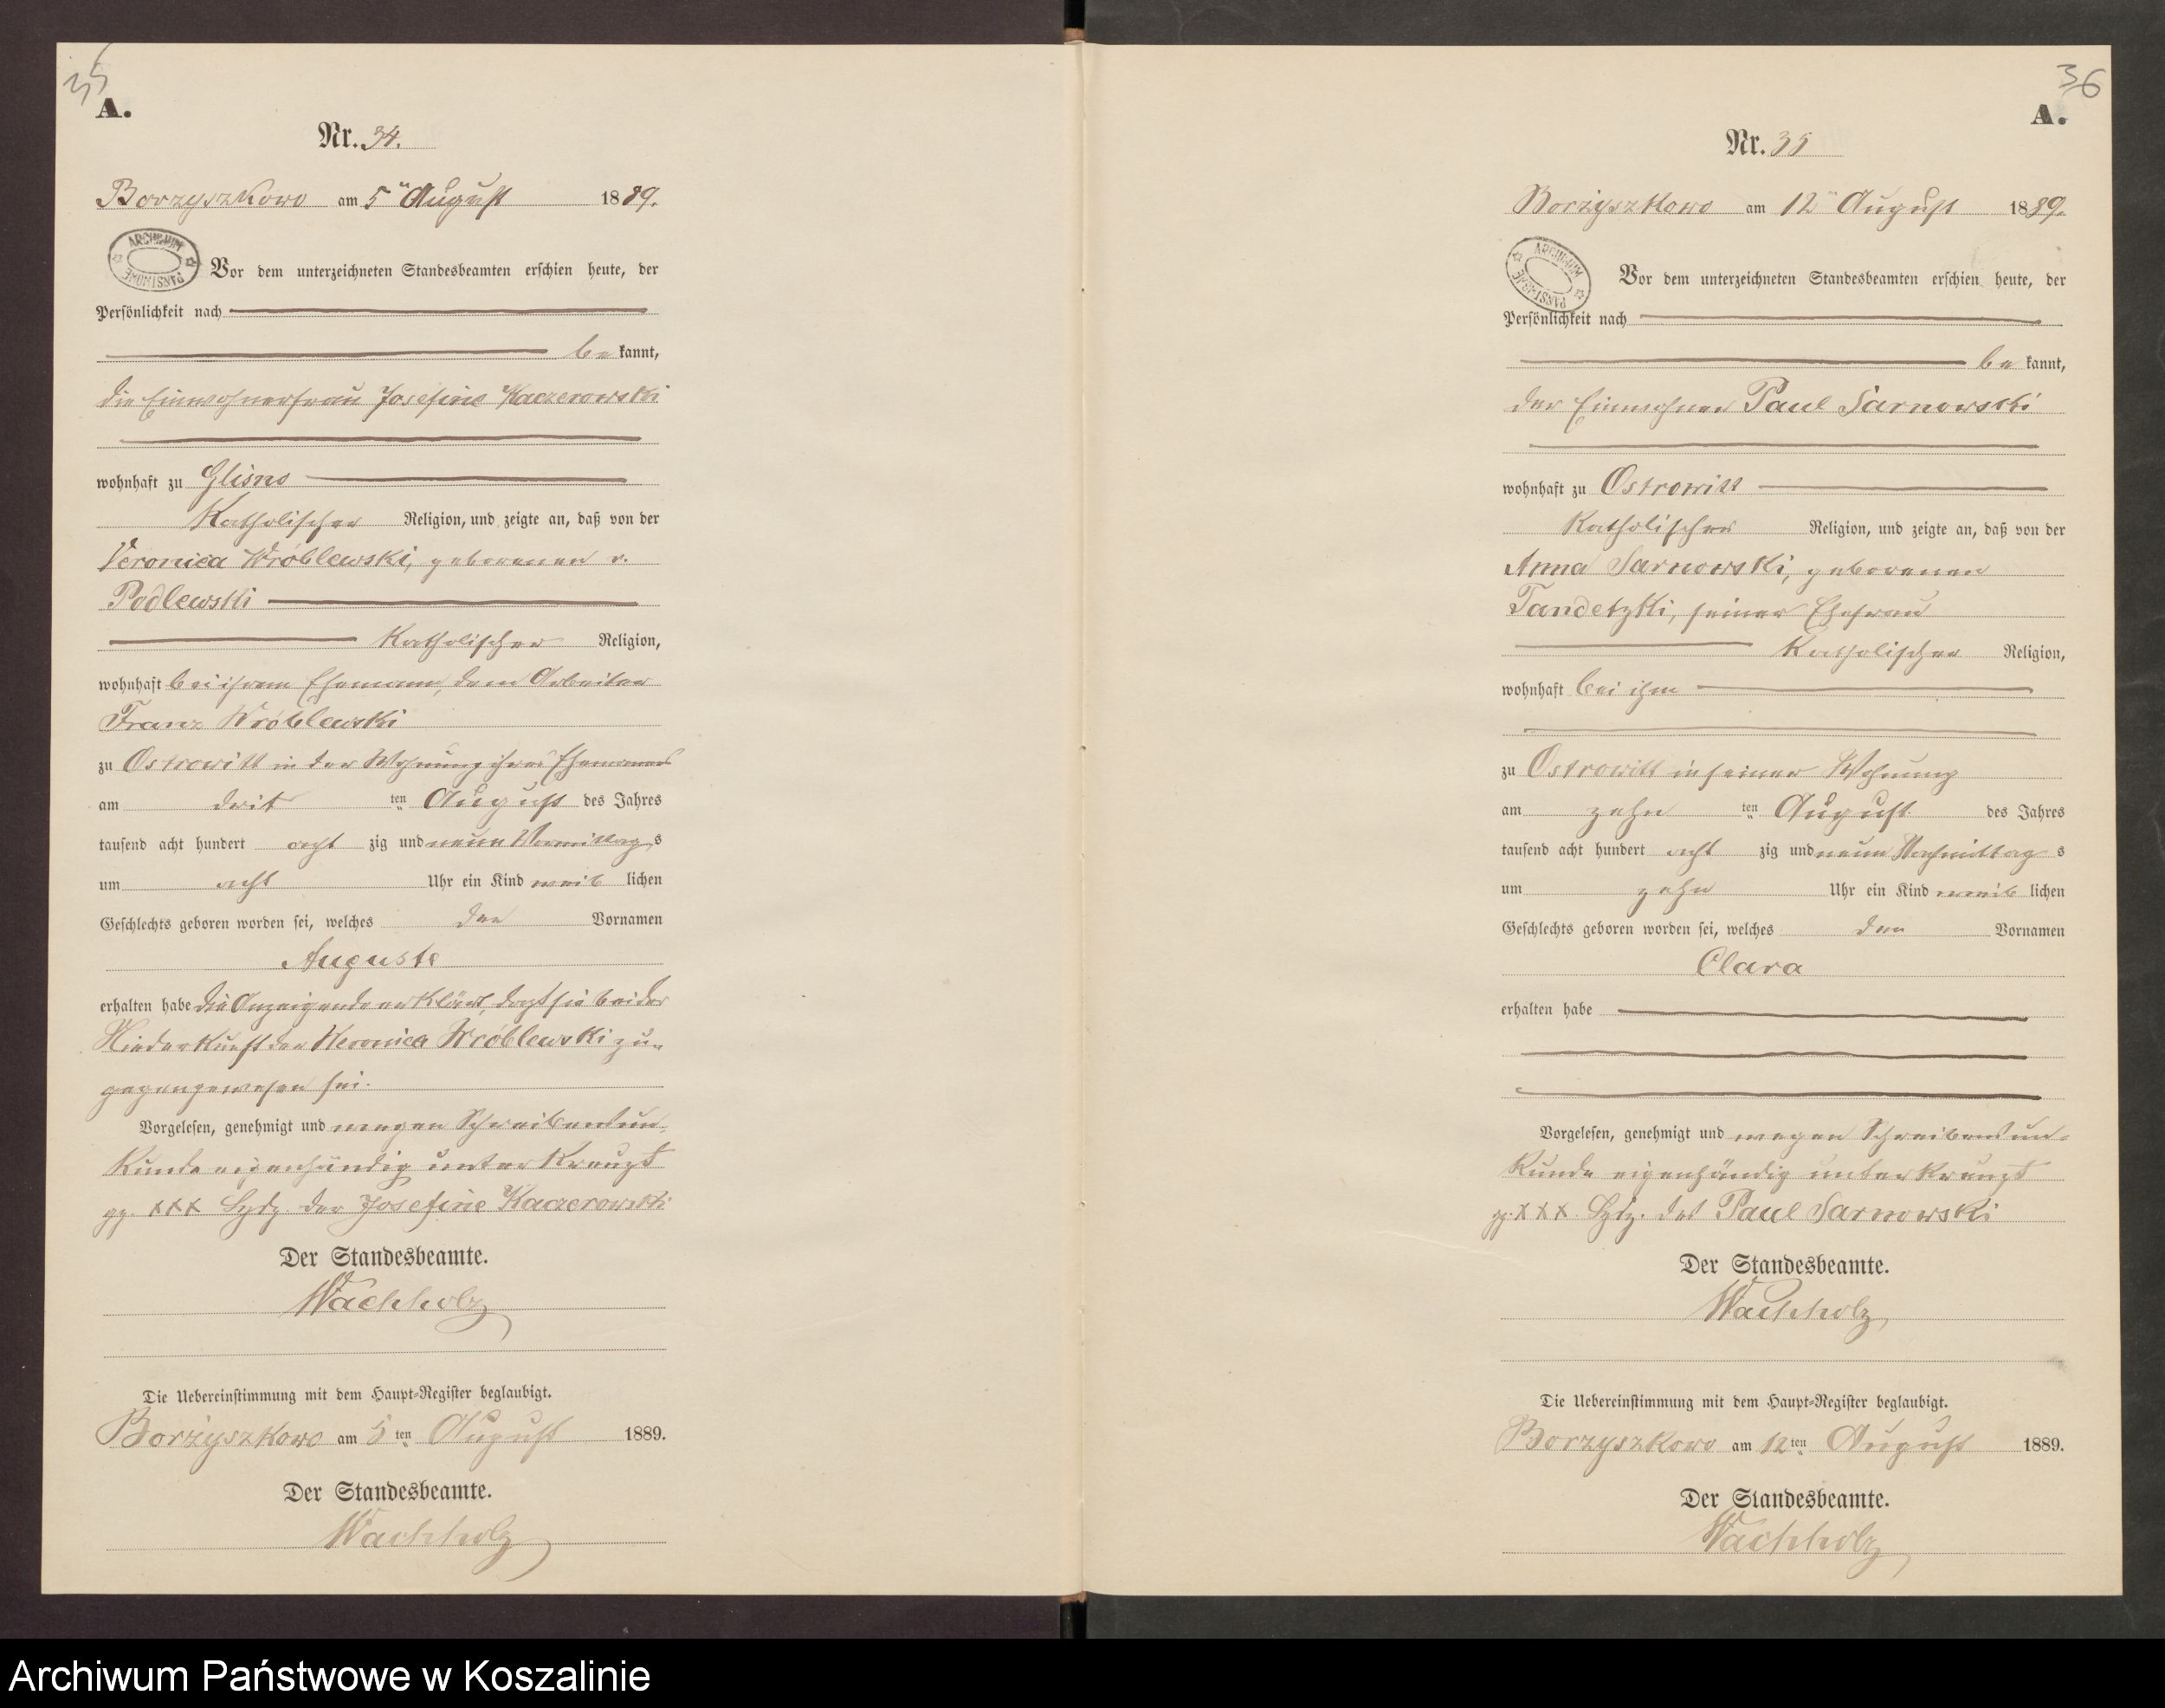 35
A.
Nr. 34.
Borzyszkowo am 5ten August 1889.
ARCHIWUM PAŃSTWOWE
Vor dem unterzeichneten Standesbeamten erschien heute, der
Persönlichkeit nach
be kannt,
die Einwohnerfrau Josefine Kaczerowski
wohnhaft zu Glisno
Katholischer Religion, und zeigte an, daß von der
Veronica Wróblewski, geborenen v.
Podlewski
Katholischer Religion,
wohnhaft bei ihrem Ehemann, dem Arbeiter
Franz Wróblewski
zu Ostrowitt in der Wohnung ihres Ehemannes
am drit ten August des Jahres
tausend acht hundert acht zig und neun Vormittag s
um acht Uhr ein Kind weib lichen
Geschlechts geboren worden sei, welches den Vornamen
Auguste
erhalten habe die Anzeigende erklärt, daß sie bei der
Niederkunft der Veronica Wróblewski zu-
gegen gewesen sei.
Vorgelesen, genehmigt und wegen Schreibensun-
kunde eigenhändig unterkreuzt
gz. xxx Hdz. der Josefine Kaczerowski
Der Standesbeamte.
Wachholz
Die Uebereinstimmung mit dem Haupt-Register beglaubigt.
Borzyszkowo am 5ten August 1889.
Der Standesbeamte.
Wachholz
36
A.
Nr. 35
Borzyszkowo am 12ten August 1889.
ARCHIWUM PAŃSTWOWE
Vor dem unterzeichneten Standesbeamten erschien heute, der
Persönlichkeit nach
be kannt,
der Einwohner Paul Sarnowski
wohnhaft zu Ostrowitt
Katholischer Religion, und zeigte an, daß von der
Anna Sarnowski, geborenen
Tandetzki, seiner Ehefrau
Katholischer Religion,
wohnhaft bei ihm
zu Ostrowitt in seiner Wohnung
am zehn ten August des Jahres
tausend acht hundert acht zig und neun Nachmittag s
um zehn Uhr ein Kind weib lichen
Geschlechts geboren worden sei, welches den Vornamen
Clara
erhalten habe
Vorgelesen, genehmigt und wegen Schreibensun-
kunde eigenhändig unterkreuzt
gz. xxx Hdz. des Paul Sarnowski
Der Standesbeamte.
Wachholz
Die Uebereinstimmung mit dem Haupt-Register beglaubigt.
Borzyszkowo am 12ten August 1889.
Der Standesbeamte.
Wachholz
Archiwum Państwowe w Koszalinie